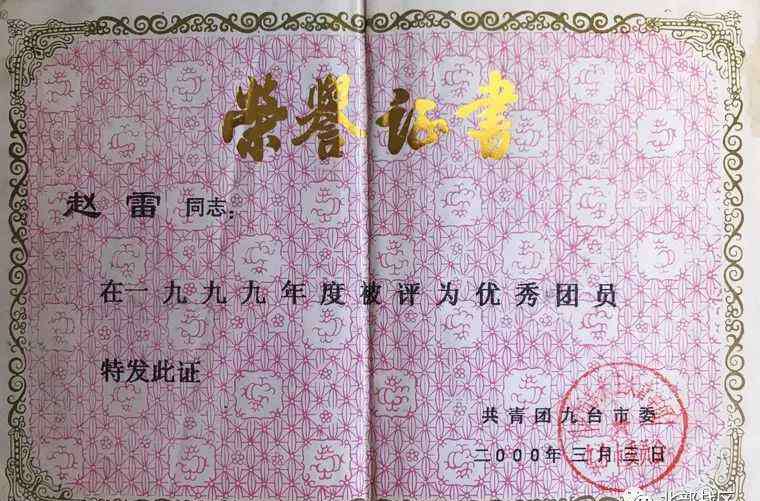 荣誉证书
赵雷 同志：
在一九九九年度被评为优秀团员
特发此证
共青团九台市委
二000年三月三日
北部战区